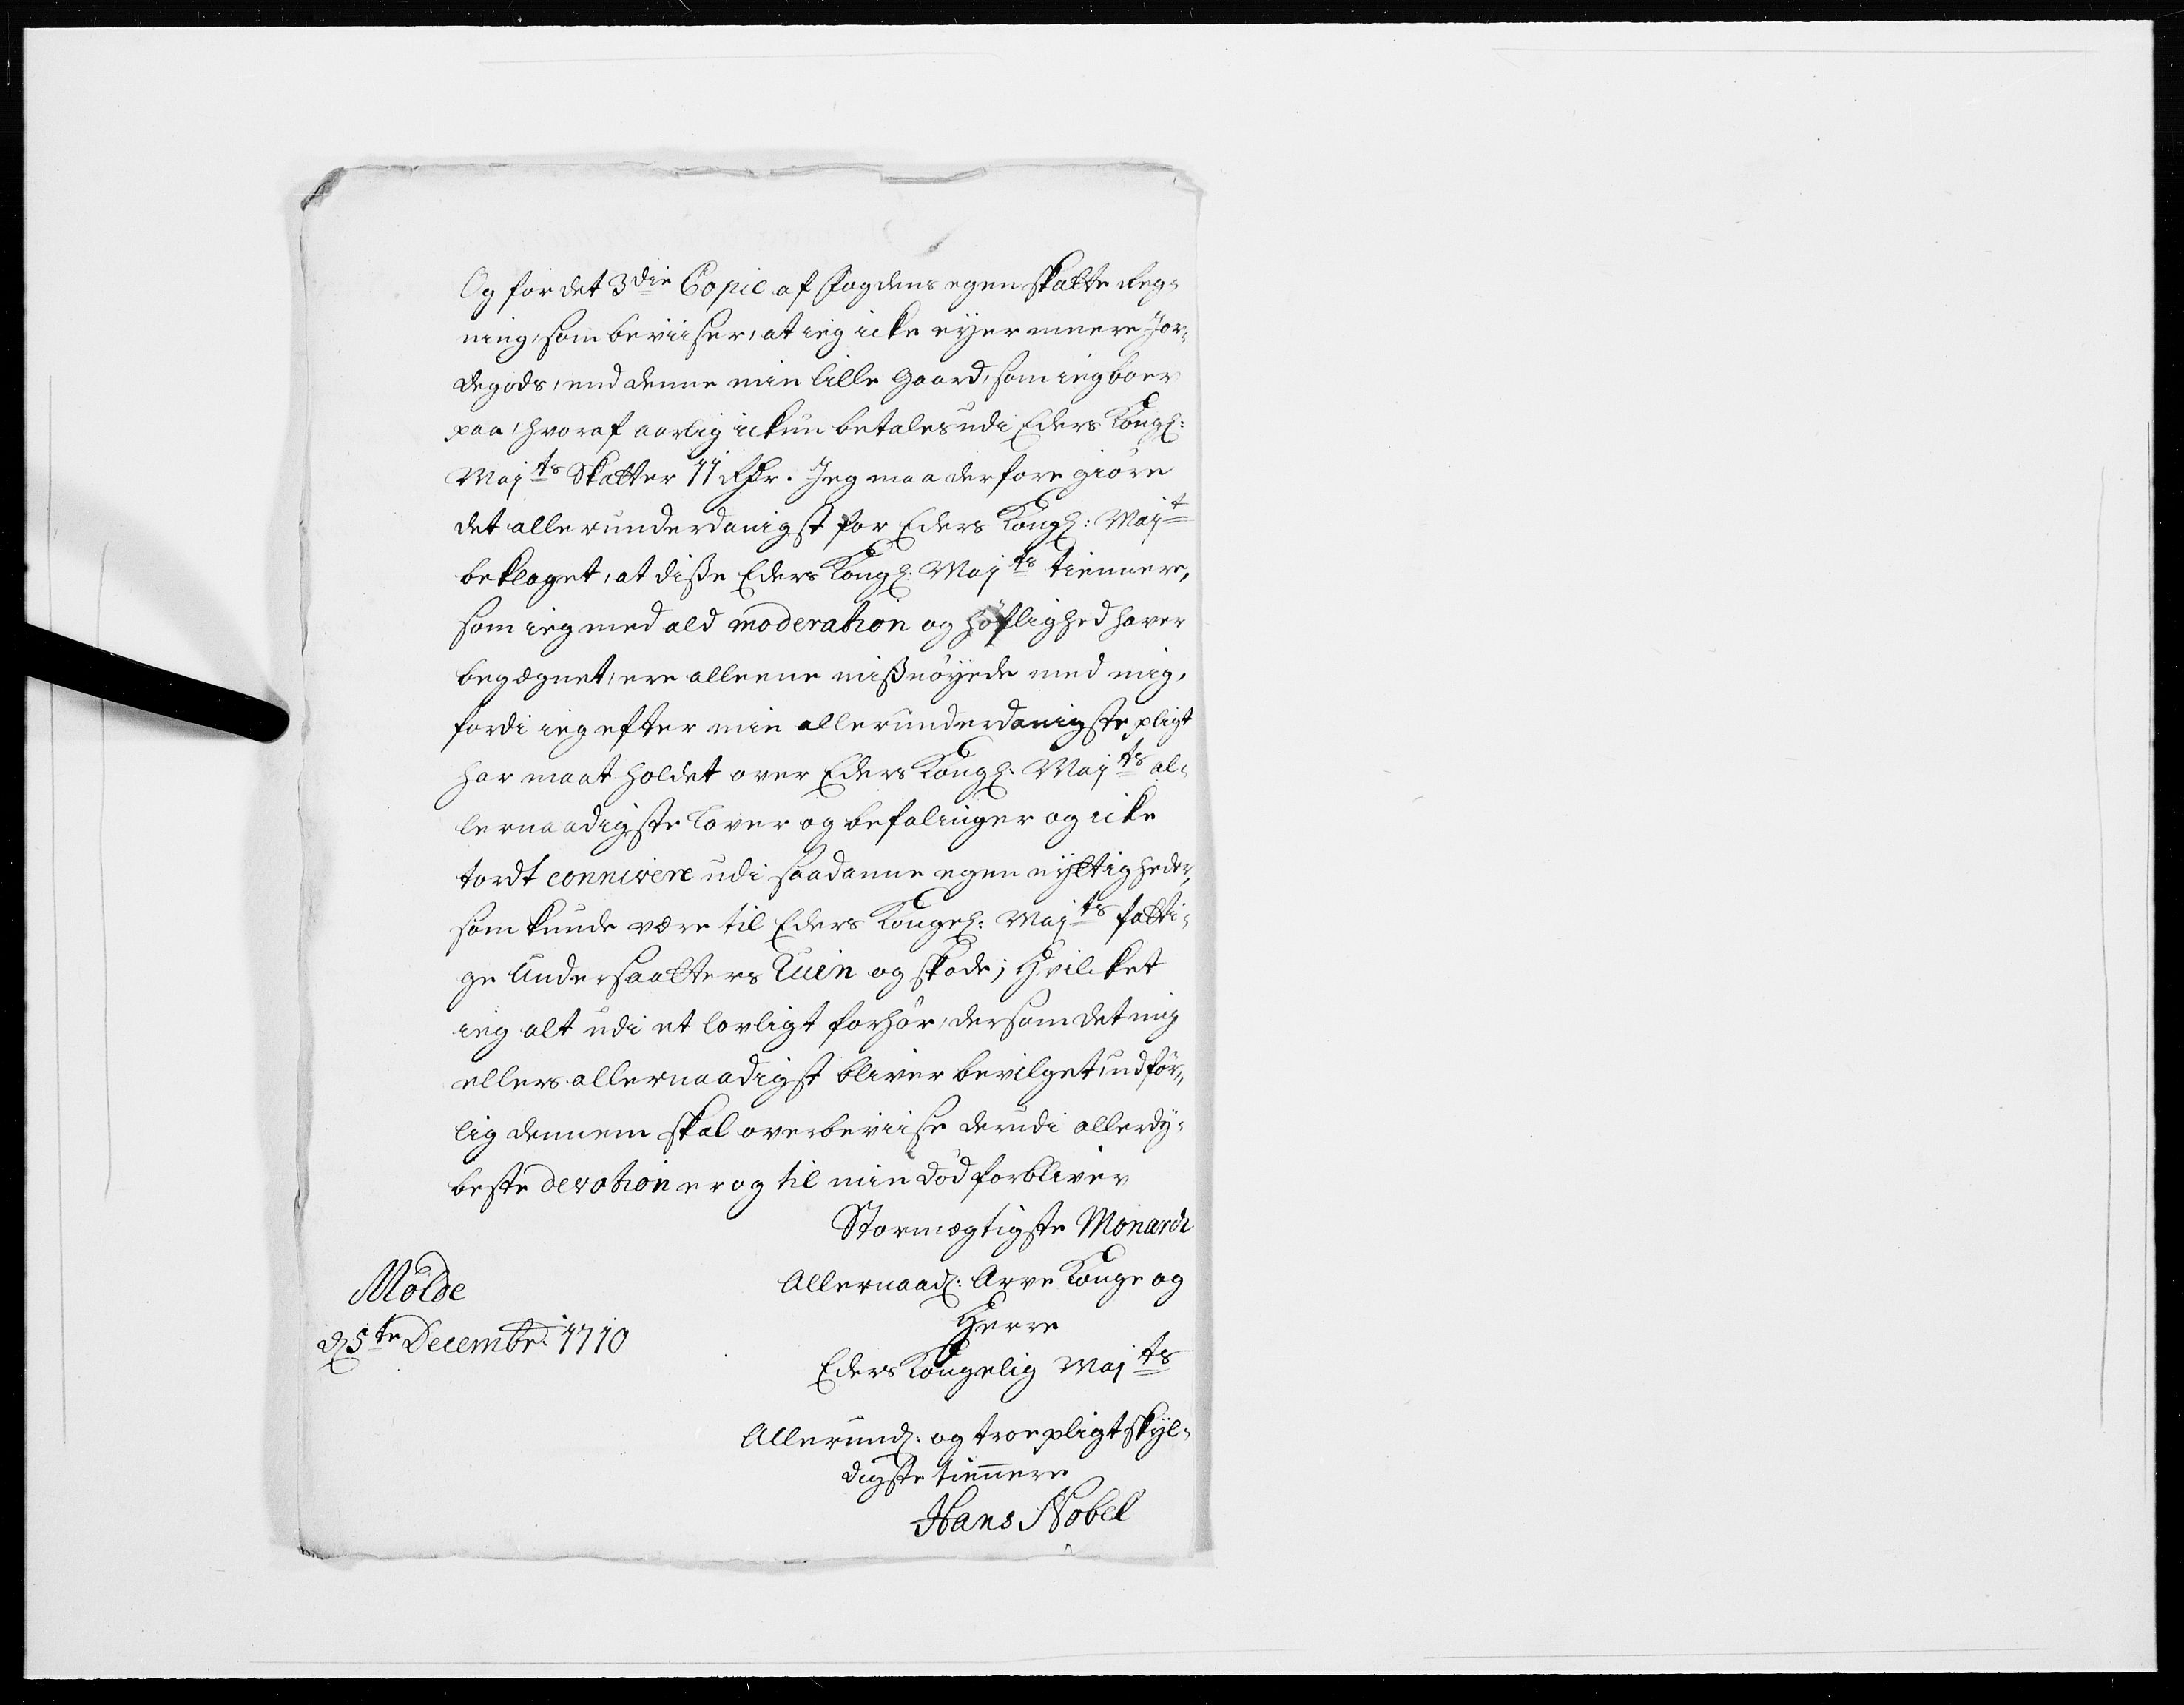 Og for det 3die Copie af Fogdens egen skatte Reg-
ning, som beviiser, at ieg icke eyer meere Jor-
degods, end denne min lille Gaard, som ieg boer
paa, hvoraf aarlig ickun betales udi Eders Kongl:
Majts Skatter 11 Rdr. Jeg maa derfore giöre
det allerunderdanigst for Eders Kongl: Majt
beklaget, at disse Eders Kongl: Majts tiennere,
som ieg med ald moderation og höflighed haver
begægnet, ere alleene missnöyede med mig,
fordi ieg efter min allerunderdanigste pligt
har maat holdet over Eders Kongl: Majts al-
lernaadigste Lover og befalinger og icke
tordt connivere udi saadanne egennyttigheder,
som kunde være til Eders Kongel: Majts fatti-
ge Undersaatters Ruin og skade; Hvilcket
ieg alt udi et lovligt forhör, dersom det mig
ellers allernaadigst bliver bevilget, udför-
lig dennem skal overbeviise derudi allerdy-
beste devotion er og til min död forbliver
Stormægtigste Monarch
Allernaad: Arve Konge og
Herre
Eders Kongelig Majts
Molde
d 5te Decembr: 1710
Allerund: og troepligtskyl-
digste tiennere
Hans Nobel